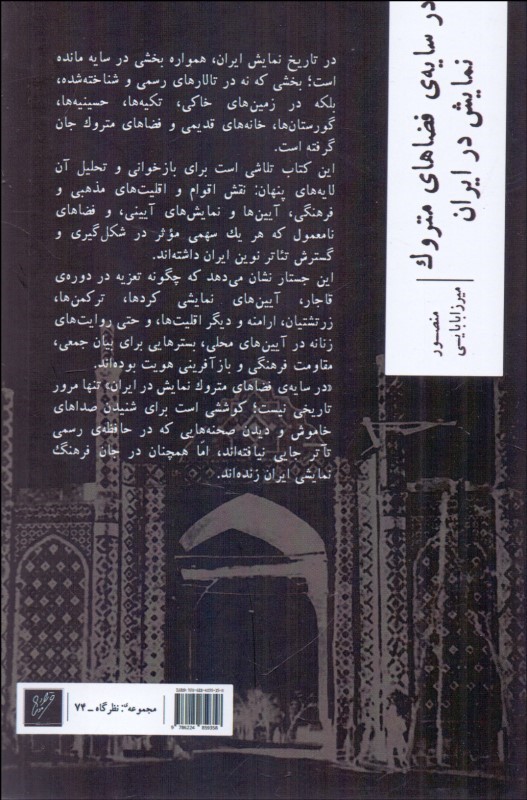 در سایه‌ی فضاهای متروك
نمایش در ایران
منصور
میرزابابایی
در تاریخ نمایش ایران، همواره بخشی در سایه مانده
است؛ بخشی که نه در تالارهای رسمی و شناخته‌شده،
بلکه در زمین‌های خاکی، تکیه‌ها، حسینیه‌ها،
گورستان‌ها، خانه‌های قدیمی و فضاهای متروك جان
گرفته است.
این کتاب تلاشی است برای بازخوانی و تحلیل آن
لایه‌های پنهان: نقش اقوام و اقلیت‌های مذهبی و
فرهنگی، آیین‌ها و نمایش‌های آیینی، و فضاهای
نامعمول که هر یك سهمی مؤثر در شکل‌گیری و
گسترش تئاتر نوین ایران داشته‌اند.
این جستار نشان می‌دهد که چگونه تعزیه در دوره‌ی
قاجار، آیین‌های نمایشی کردها، ترکمن‌ها،
زرتشتیان، ارامنه و دیگر اقلیت‌ها، و حتی روایت‌های
زنانه در آیین‌های محلی، بسترهایی برای بیان جمعی،
مقاومت فرهنگی و بازآفرینی هویت بوده‌اند.
«در سایه‌ی فضاهای متروك نمایش در ایران» تنها مرور
تاریخی نیست؛ کوششی است برای شنیدن صداهای
خاموش و دیدن صحنه‌هایی که در حافظه‌ی رسمی
تآتر جایی نیافته‌اند، امّا همچنان در جان فرهنگ
نمایشی ایران زنده‌اند.
مجموعه‌ٔ: نظرگاه – ۷۴